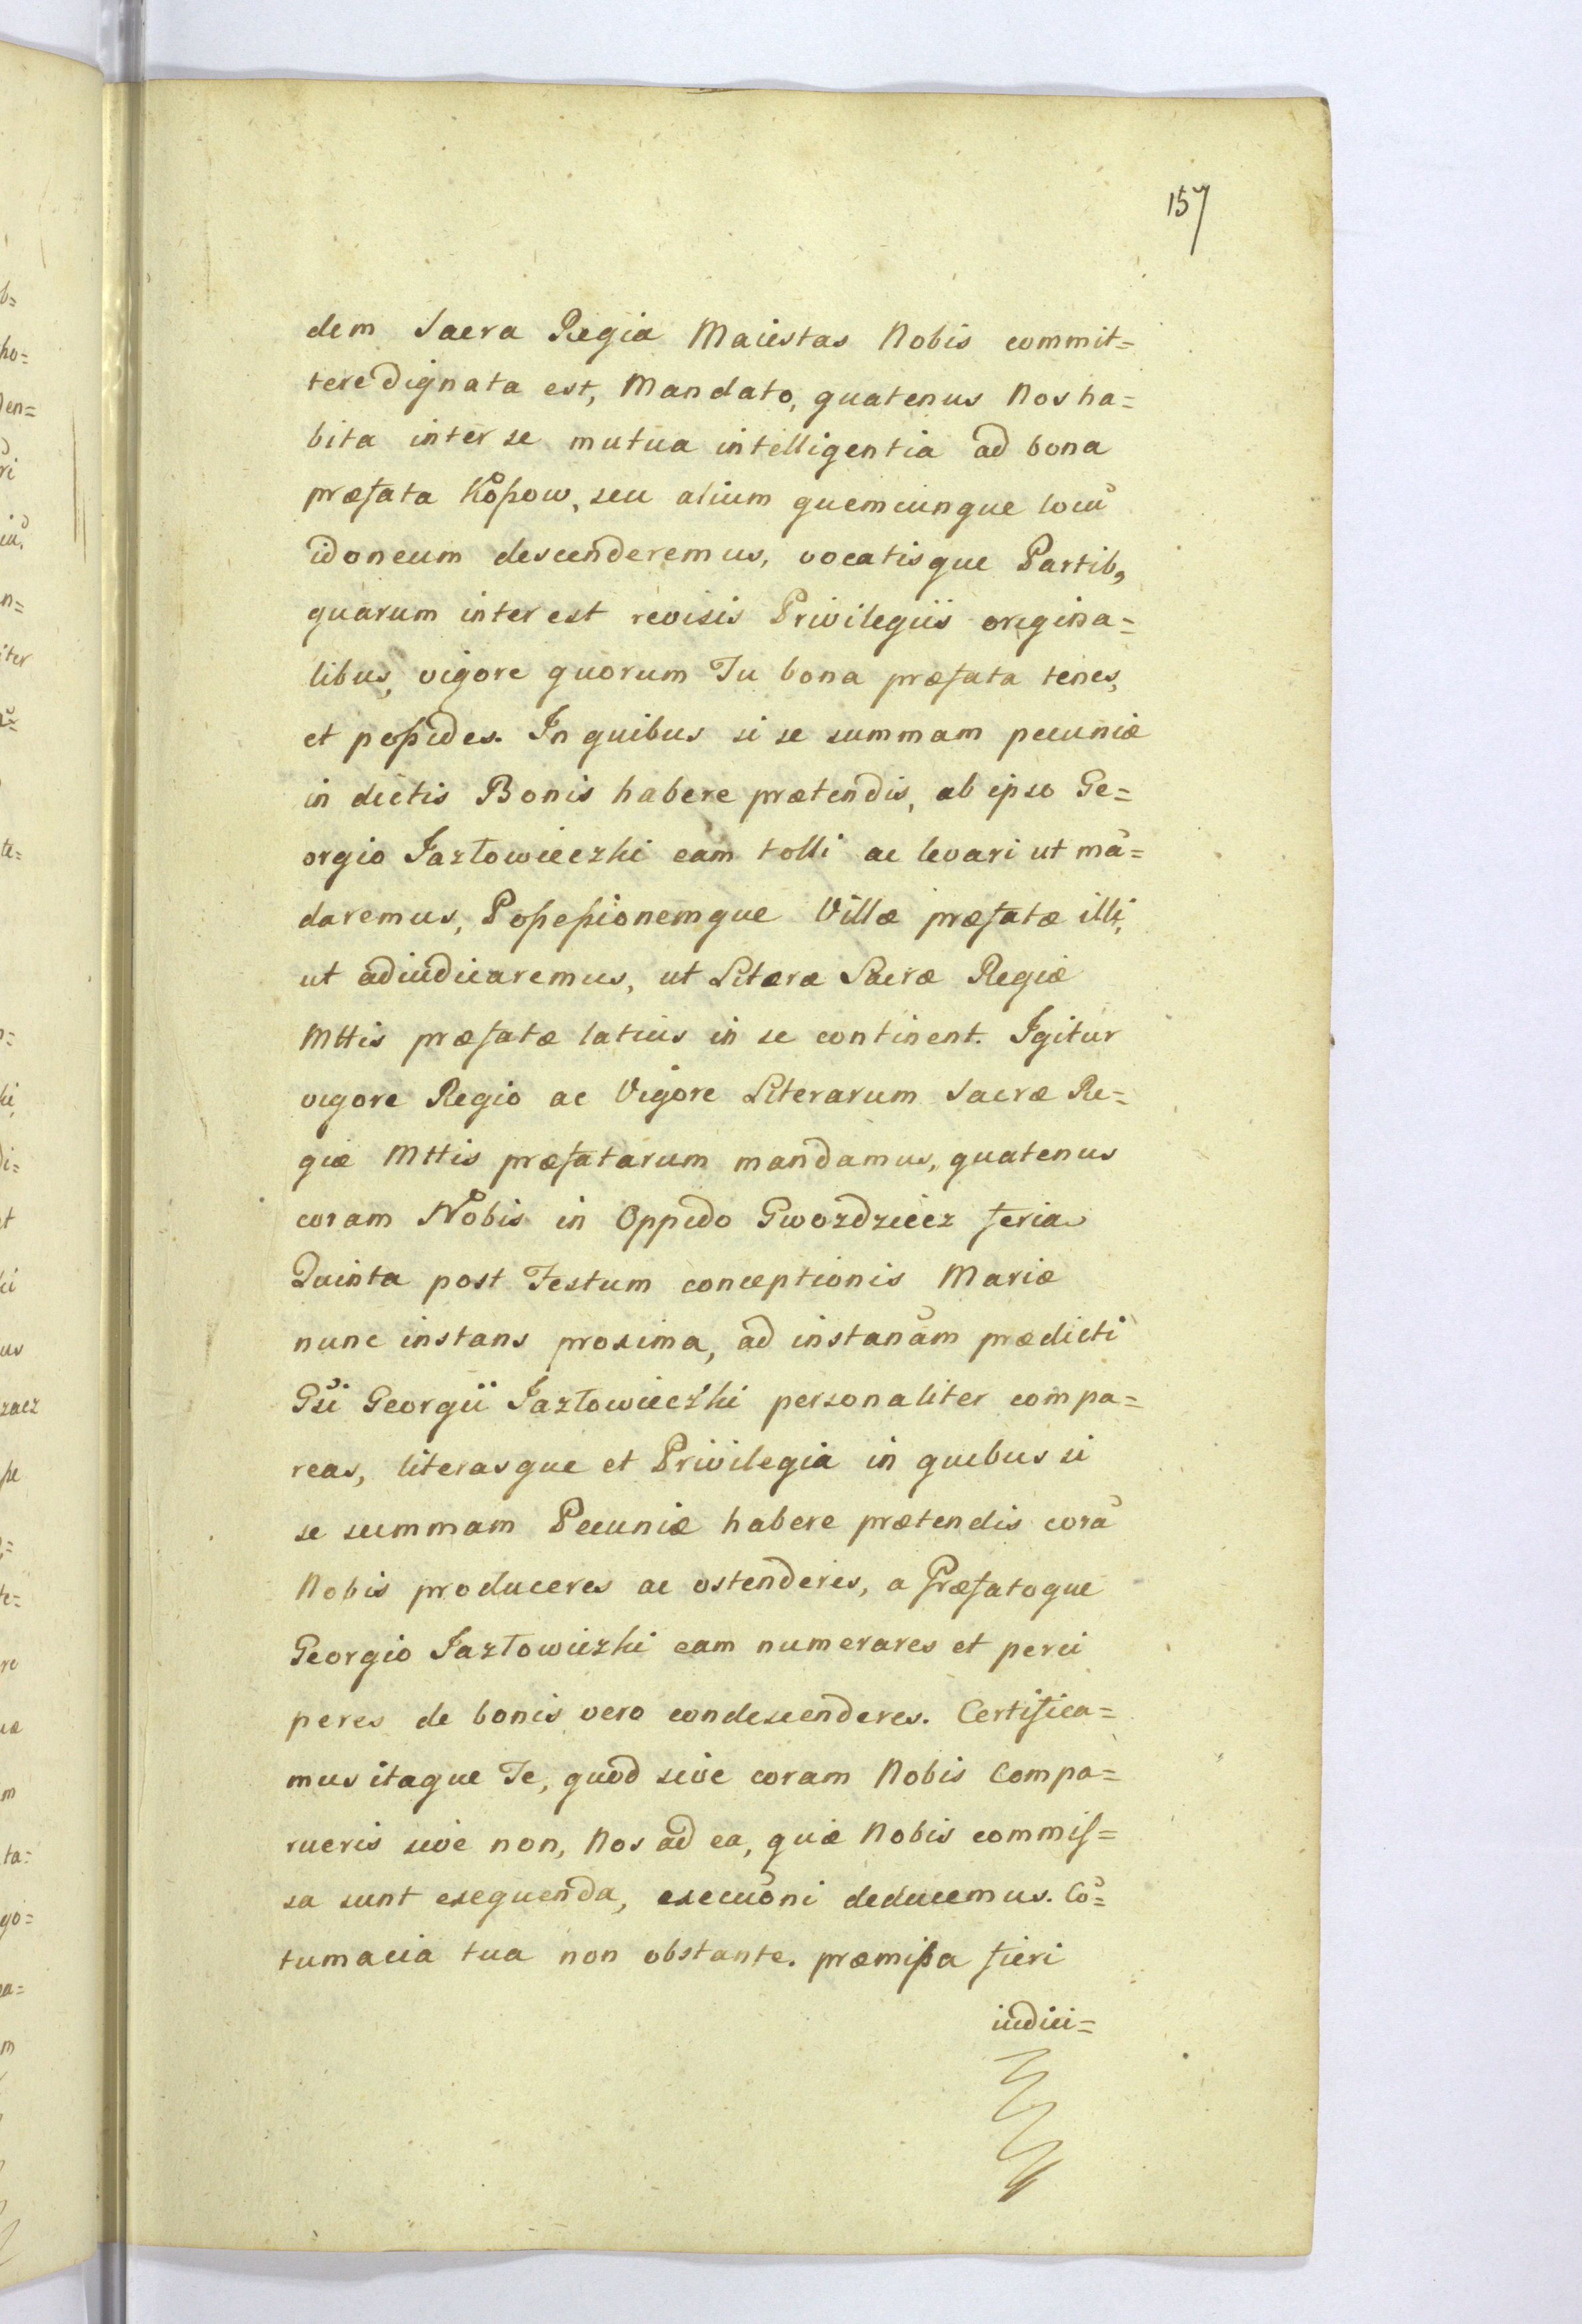 157
dem Sacra Regia Maiestas Nobis commit=
tere dignata est, Mandato, quatenus Nos ha=
bita inter se mutua intelligentia ad bona
præfata Koſsow, seu alium quemcunque locũ
idoneum descenderemus, vocatisque Partib9
quarum interest revisis Privilegiis origina=
libus, vigore quorum Tu bona præfata tenes,
et poſsides. In quibus si se summam pecuniæ
in dictis Bonis habere prætendis, ab ipso Ge=
orgio Jazłowieczki eam tolli ac levari ut mã=
daremus, Poſseſsionemque Villæ præfatæ illi,
ut adiudicaremus, ut Literæ Sacræ Regiæ
Mttis præfatæ latius in se continent. Igitur
vigore Regio ac Vigore Literarum Sacræ Re=
giæ Mttis præfatarum mandamus, quatenus
coram Nobis in Oppido Gwozdziecz feria
Quinta post Festum conceptionis Mariæ
nunc instans proxima, ad instan̄am prædicti
Gsi Georgii Jazłowieczki personaliter compa=
reas, literasque et Privilegia in quibus si
se summam Pecuniæ habere prætendis corã
Nobis produceres ac ostenderes, a Præfatoque
Georgio Jazłowiczki eam numerares et perci
peres de bonis vero condescenderes. Certifica=
mus itaque Te, quod sive coram Nobis Compa=
rueris sive non, Nos ad ea, quæ Nobis commiſ=
sa sunt exequenda, execuōni deducemus. Cõ=
tumacia tua non obstante. præmiſsa fieri
iudici=